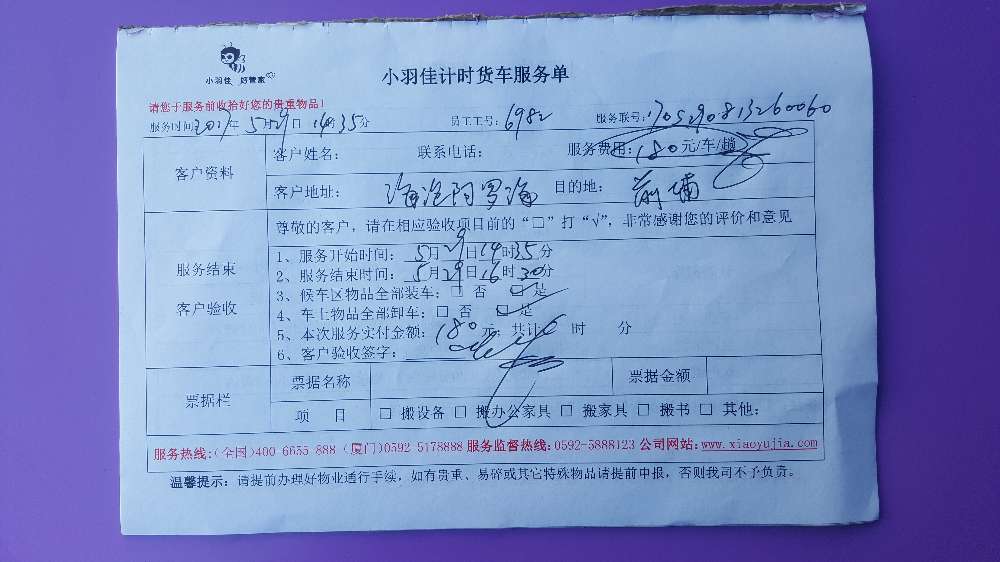 小羽佳 好管家
小羽佳计时货车服务单
请您于服务前收拾好您的贵重物品!
服务时间:2017年5月29日14时35分 员工工号:6982 服务联号:1705290813260060
客户资料
客户姓名: 联系电话: 服务费用:180元/车/趟
客户地址: 海沧阿罗海 目的地: 前埔
尊敬的客户,请在相应验收项目前的“□”打“√”,非常感谢您的评价和意见
服务结束
客户验收
1、服务开始时间:5月29日14时35分
2、服务结束时间:5月29日16时30分
3、候车区物品全部装车:□ 否 □是
4、车上物品全部卸车:□ 否 □是
5、本次服务实付金额:180元;共计 时 分
6、客户验收签字:
票据栏
票据名称 票据金额
项 目 □ 搬设备 □ 搬办公家具 □ 搬家具 □ 搬书 □ 其他:
服务热线:(全国)400 6655 888 (厦门)0592 5178888 服务监督热线:0592-5888123 公司网站:www.xiaoyujia.com
温馨提示:请提前办理好物业通行手续,如有贵重、易碎或其它特殊物品请提前申报,否则我司不予负责。